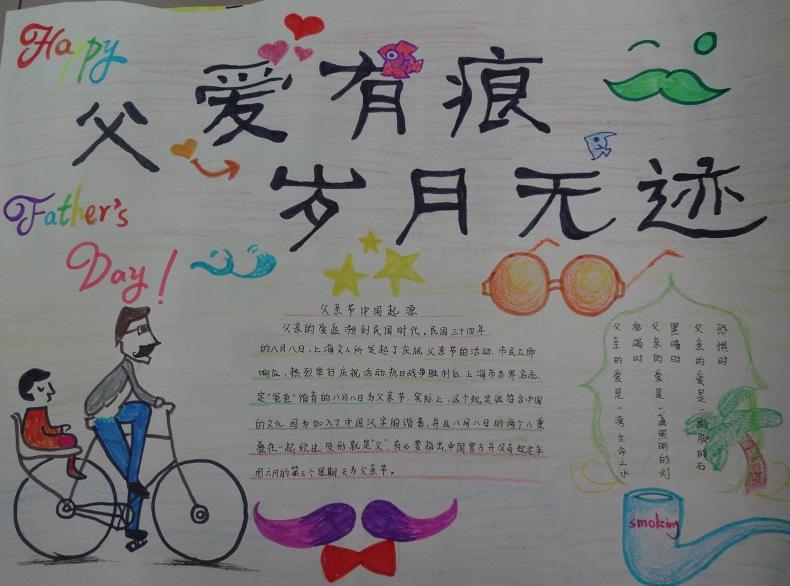 Happy
父爱有痕
岁月无迹
Father's
Day!
父亲节中国起源
父亲的爱追溯到民国时代。民国三十四年
的八月八日,上海文人所发起了庆祝父亲节的活动,市民立即
响应,热烈举行庆祝活动.抗日战争胜利后,上海市各界名流
定"爸爸"谐音的八月八日为父亲节.实际上,这个规定很符合中国
的文化,因为加入了中国汉字的谐音,并且八月八日的两个八重
叠在一起经 形就是"父".有必要指出,中国官方并没有规定采
用六月的第三个星期天为父亲节。
恐惧时
父亲的爱是一踏脚石
黑暗时
父亲的爱是一盏照明的灯
枯竭时
父亲的爱是一湾生命之水
smoking